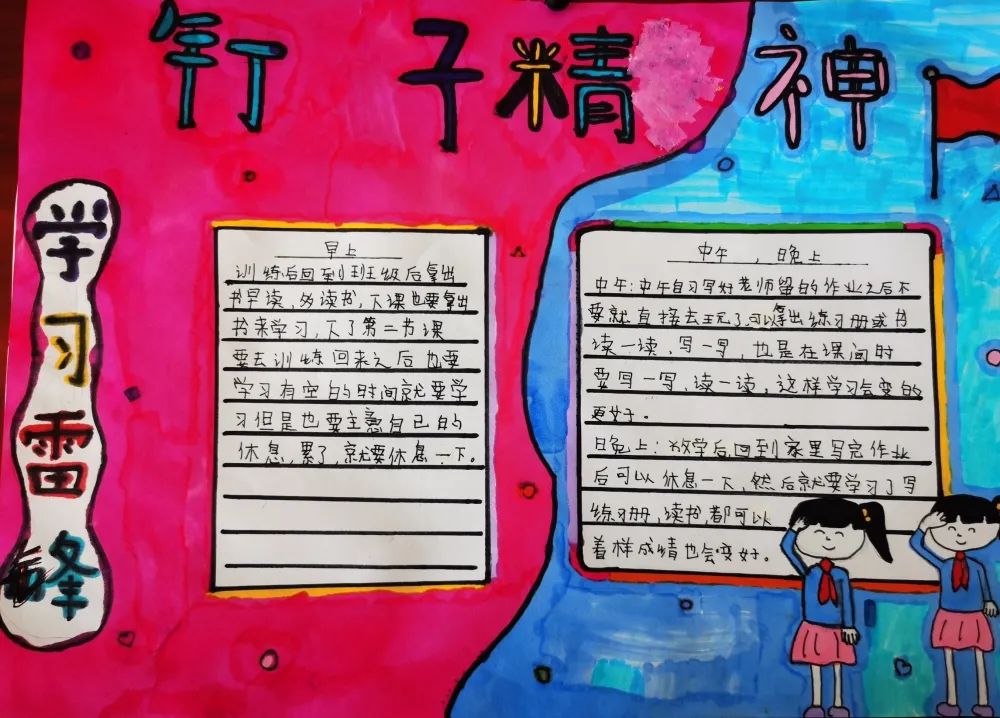 钉子精神
学习雷锋
早上
训练后回到班级后拿出
书早读，多读书，下课也要拿出
书来学习，下了第二节课
要去训练回来之后也要
学习有空的时间就要学
习但是也要主意自己的
休息，累了，就要休息一下。
中午，晚上
中午：中午自习写好老师留的作业之后不
要就直接去玩了，可以拿出练习册或书
读一读，写一写，也是在课间时
要写一写，读一读，这样学习会变的
更好。
晚上：放学后，回到家里写完作业
后可以休息一下，然后就要学习了写
练习册，读书，都可以
着样成绩也会变好。